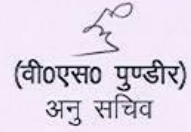 (वी०एस० पुण्डीर)
अनु सचिव